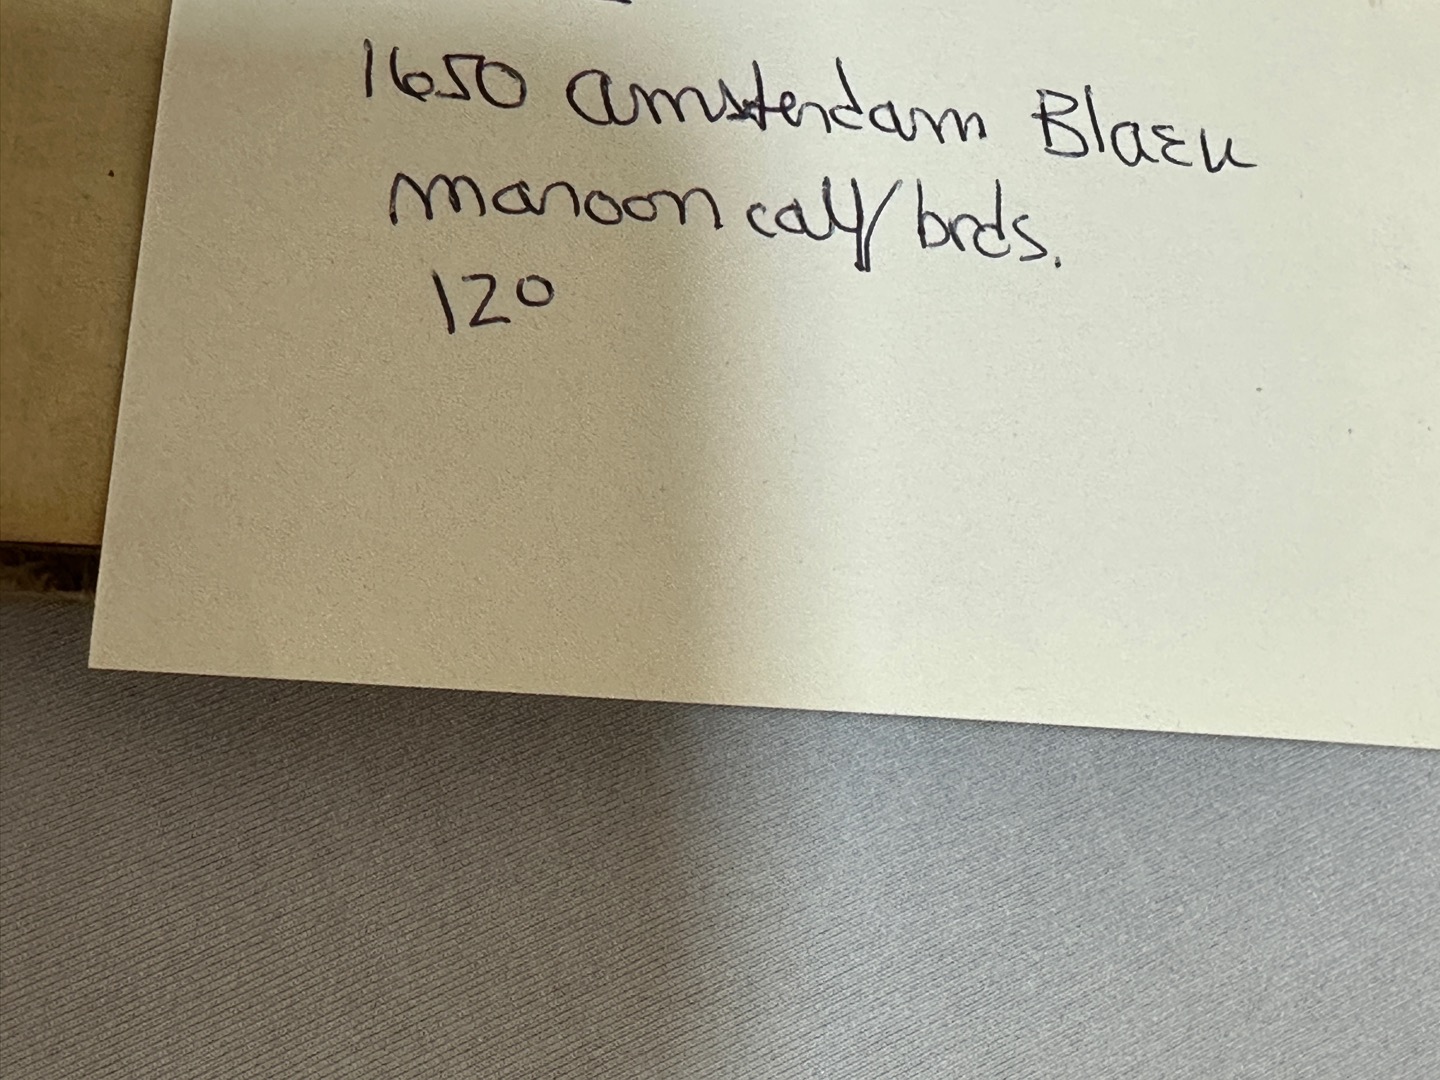 1650 Amsterdam Blaeu
maroon calf/brds.
12º